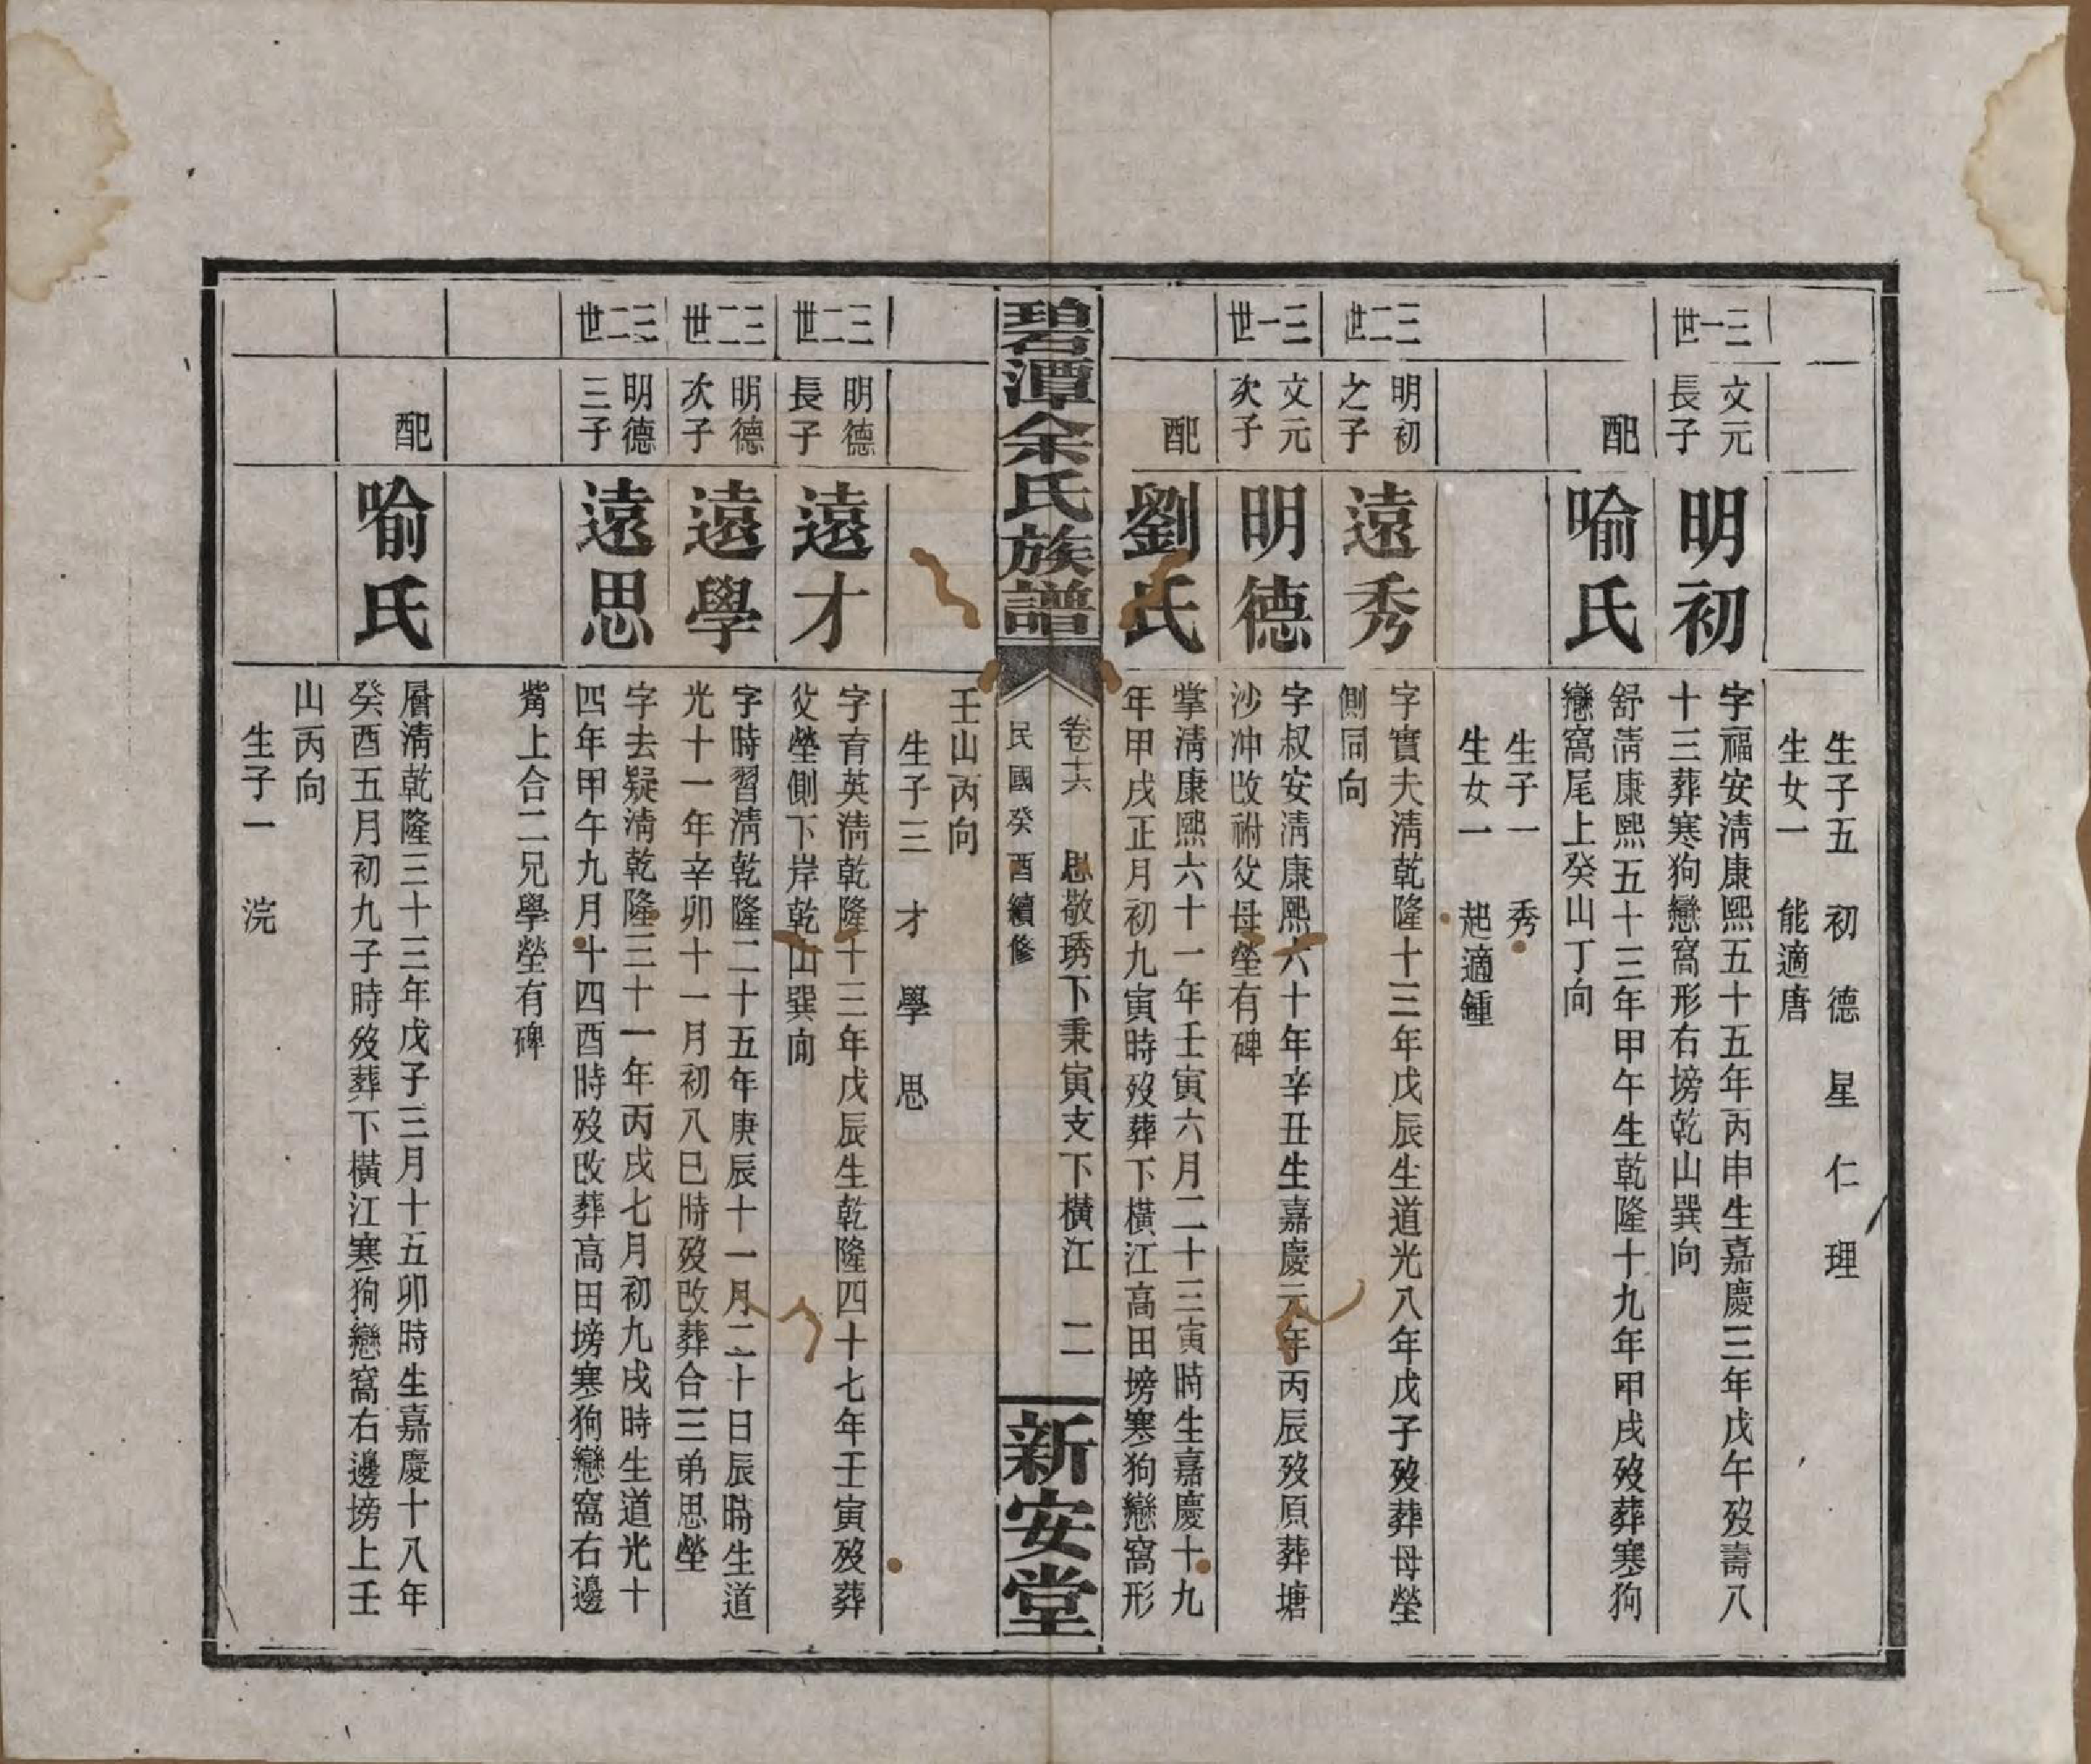 生子五 初 德 星 仁 理
生女一 能適唐
三一世
文元
長子
明初
字福安淸康熙五十五年丙申生嘉慶三年戊午歿壽八
十三葬寒狗戀窩形右塝乾山巽向
配
喻氏
舒淸康熙五十三年甲午生乾隆十九年甲戌歿葬寒狗
戀窩尾上癸山丁向
生子一 秀
生女一 起適鍾
三二世
明初
之子
遠秀
字實夫淸乾隆十三年戊辰生道光八年戊子歿葬母塋
側同向
三一世
文元
次子
明德
字叔安淸康熙六十年辛丑生嘉慶元年丙辰歿原葬塘
沙冲改祔父母塋有碑
配
劉氏
掌淸康熙六十一年壬寅六月二十三寅時生嘉慶十九
年甲戌正月初九寅時歿葬下橫江高田塝寒狗戀窩形
碧潭余氏族譜
卷十六 思敬琇下秉寅支下橫江 二
民國癸酉續修
新安堂
壬山丙向
生子三 才 學 思
三二世
明德
長子
遠才
字育英淸乾隆十三年戊辰生乾隆四十七年壬寅歿葬
父塋側下岸乾山巽向
三二世
明德
次子
遠學
字時習淸乾隆二十五年庚辰十一月二十日辰時生道
光十一年辛卯十一月初八巳時歿改葬合三弟思塋
三二世
明德
三子
遠思
字去疑淸乾隆三十一年丙戌七月初九戌時生道光十
四年甲午九月十四酉時歿改葬高田塝寒狗戀窩右邊
觜上合二兄學塋有碑
配
喻氏
層淸乾隆三十三年戊子三月十五卯時生嘉慶十八年
癸酉五月初九子時歿葬下橫江寒狗戀窩右邊塝上壬
山丙向
生子一 浣